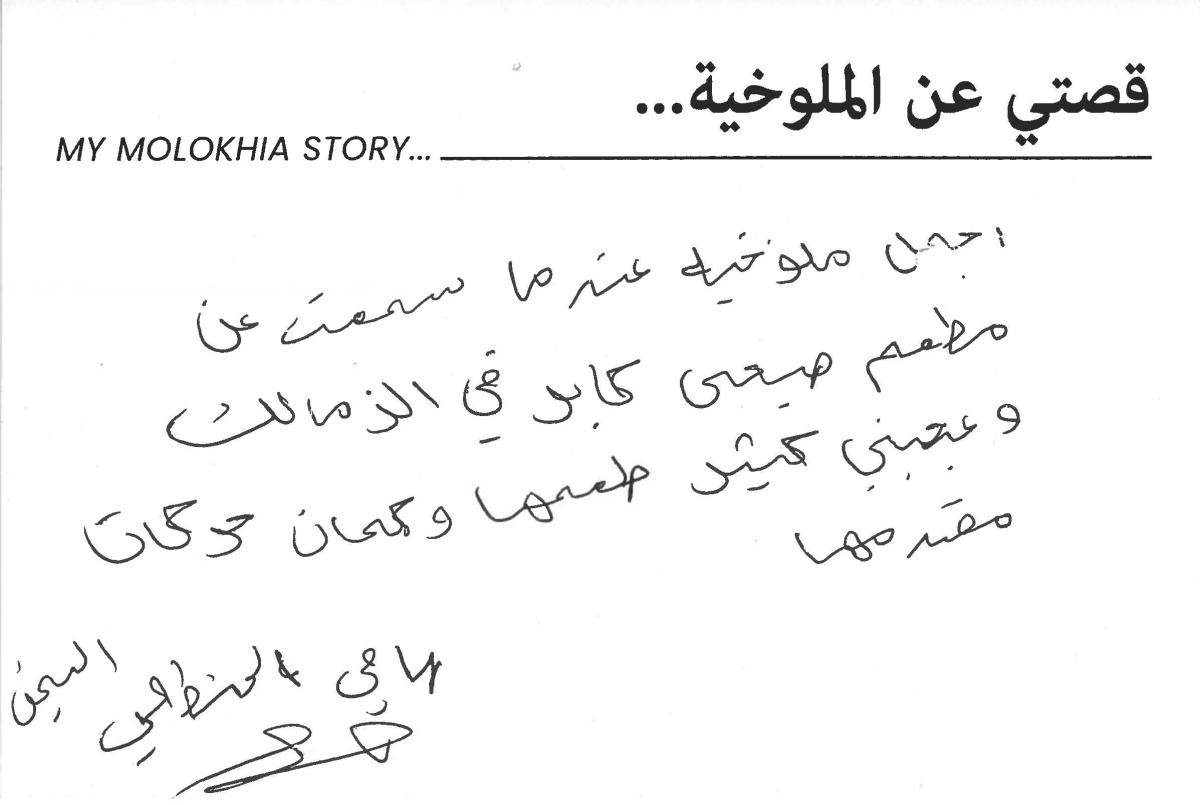 قصتي عن الملوخية...
MY MOLOKHIA STORY...
اجمل ملوخيه عندما سمعت عن
مطعم صبحى كابر في الزمالك
وعجبني كثير طعمها وكمان حركات
مقدمها
اليمن